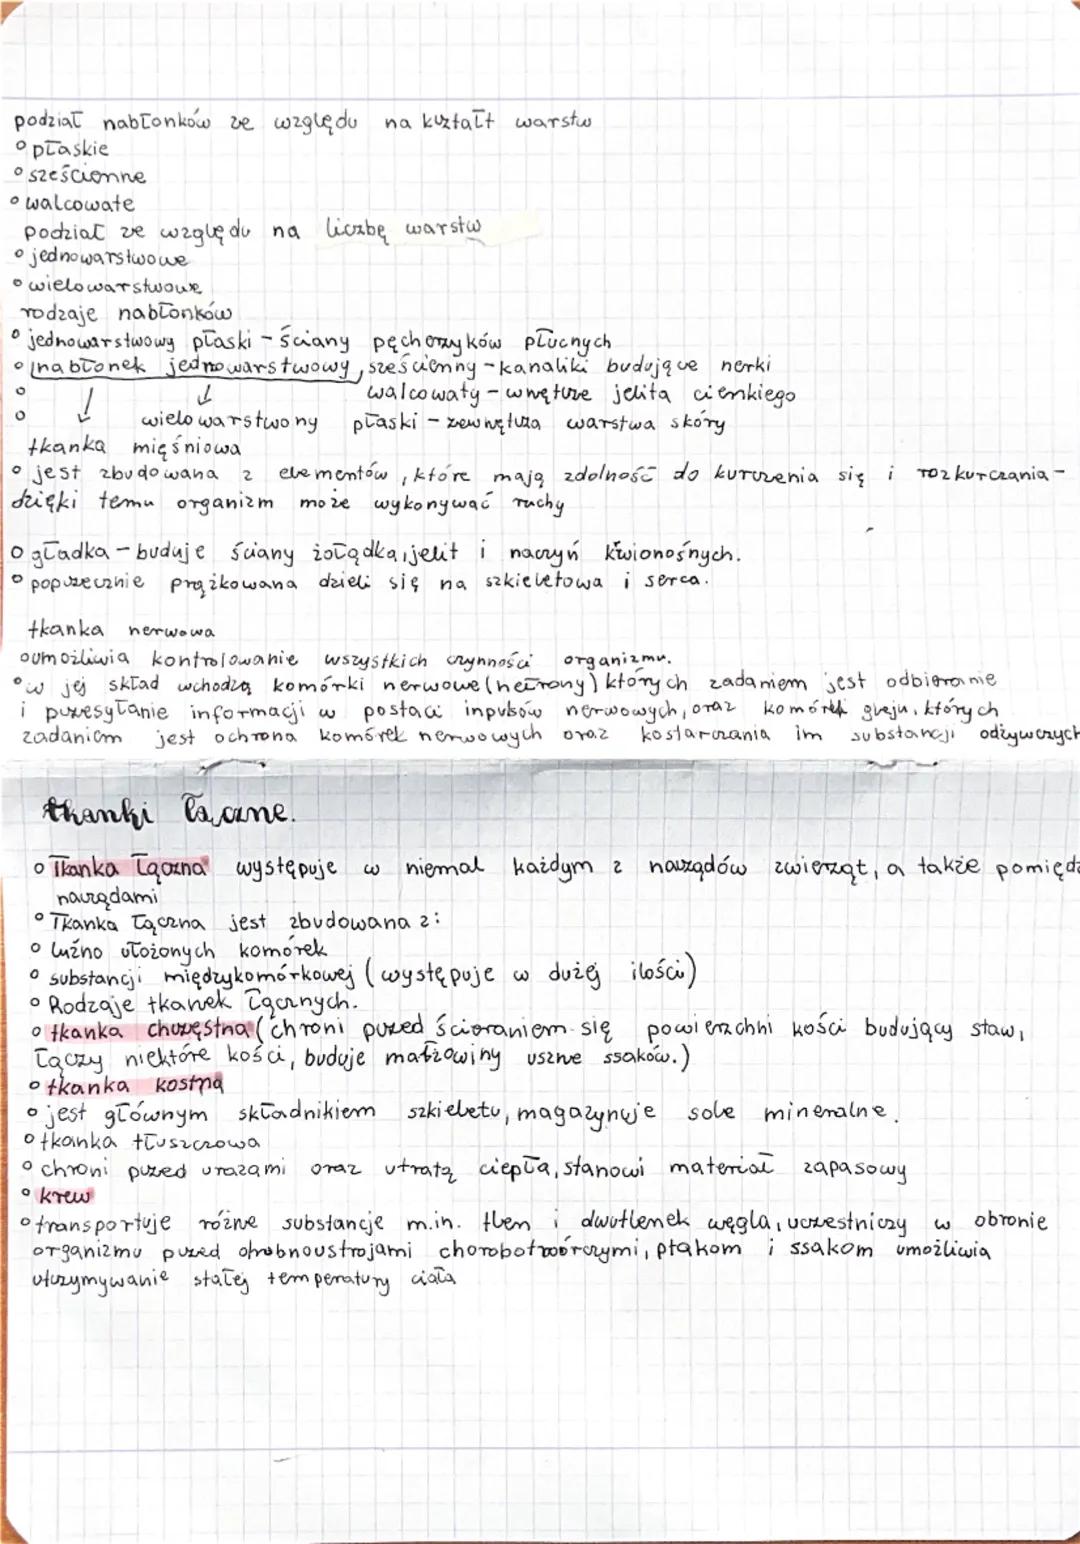 podział nabłonków ze względu na kształt warstw
° płaskie
° sześcienne
° walcowate
podział ze względu na liczbę warstw
° jednowarstwowe
° wielowarstwowe
rodzaje nabłonków
° jednowarstwowy płaski - ściany pęcherzyków płucnych
° nabłonek jednowarstwowy, sześcienny - kanaliki budujące nerki
° walcowaty - wnętrze jelita cienkiego
° wielowarstwony płaski - zewnętrza warstwa skóry
tkanka mięśniowa
° jest zbudowana z elementów, które mają zdolność do kurczenia się i rozkurczania -
dzięki temu organizm może wykonywać ruchy
° gładka - buduje ściany żołądka, jelit i naczyń krwionośnych.
° poprzecznie prążkowana dzieli się na szkieletowa i serca.
tkanka nerwowa
° umożliwia kontrolowanie wszystkich czynności organizmu.
° w jej skład wchodzą komórki nerwowe (neurony) których zadaniem jest odbieranie
i przesyłanie informacji w postaci inpulsów nerwowych, oraz komórki gleju, których
zadaniem jest ochrona komórek nerwowych oraz kostarczania im substancji odżywczych
tkanki łączne.
° Tkanka łączna występuje w niemal każdym z narządów zwierząt, a także pomiędz
narządami
° Tkanka łączna jest zbudowana z:
° luźno ułożonych komórek
° substancji międzykomórkowej (występuje w dużej ilości)
° Rodzaje tkanek łącznych.
° tkanka chrzęstna (chroni przed ścieraniem się powierzchni kości budujący staw,
łączy niektóre kości, buduje małżowiny uszne ssaków.)
° tkanka kostna
° jest głównym składnikiem szkieletu, magazynuje sole mineralne.
° tkanka tłuszczowa
° chroni przed urazami oraz utratą ciepła, stanowi materiał zapasowy
° krew
° transportuje różne substancje m.in. tlen i dwutlenek węgla, uczestniczy w obronie
organizmu przed drobnoustrojami chorobotwórczymi, ptakom i ssakom umożliwia
utrzymywanie stałej temperatury ciała